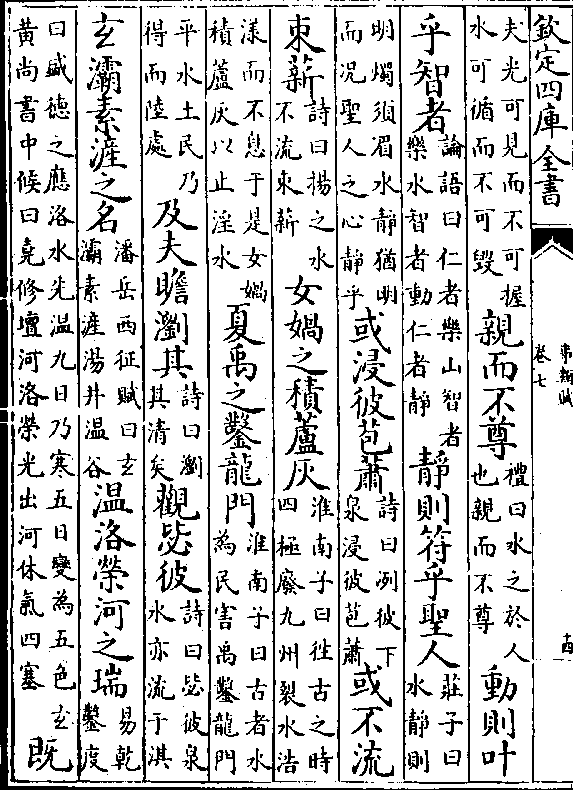 欽定四庫全書
事類賦
卷七
十四
夫光可見而不可握
水可循而不可毀
親而不尊
禮曰水之於人
也親而不尊
動則叶
乎智者
論語曰仁者樂山智者
樂水智者動仁者靜
靜則符乎聖人
莊子曰
水靜則
明燭須眉水靜猶明
而况聖人之心靜乎
或浸彼苞蕭
詩曰冽彼下
泉浸彼苞蕭
或不流
束薪
詩曰揚之水
不流束薪
女媧之積蘆灰
淮南子曰往古之時
四極廢九州裂水浩
漾而不息于是女媧
積蘆灰以止淫水
夏禹之鑿龍門
淮南子曰古者水
為民害禹鑿龍門
平水土民乃
得而陸處
及夫瞻瀏其
詩曰瀏
其清矣
觀毖彼
詩曰毖彼泉
水亦流于淇
玄灞素滻之名
潘岳西征賦曰玄
灞素滻湯井温谷
温洛榮河之瑞
易乾
鑿度
曰盛德之應洛水先温九日乃寒五日變為五色玄
黄尚書中候曰堯修壇河洛榮光出河休氣四塞
既